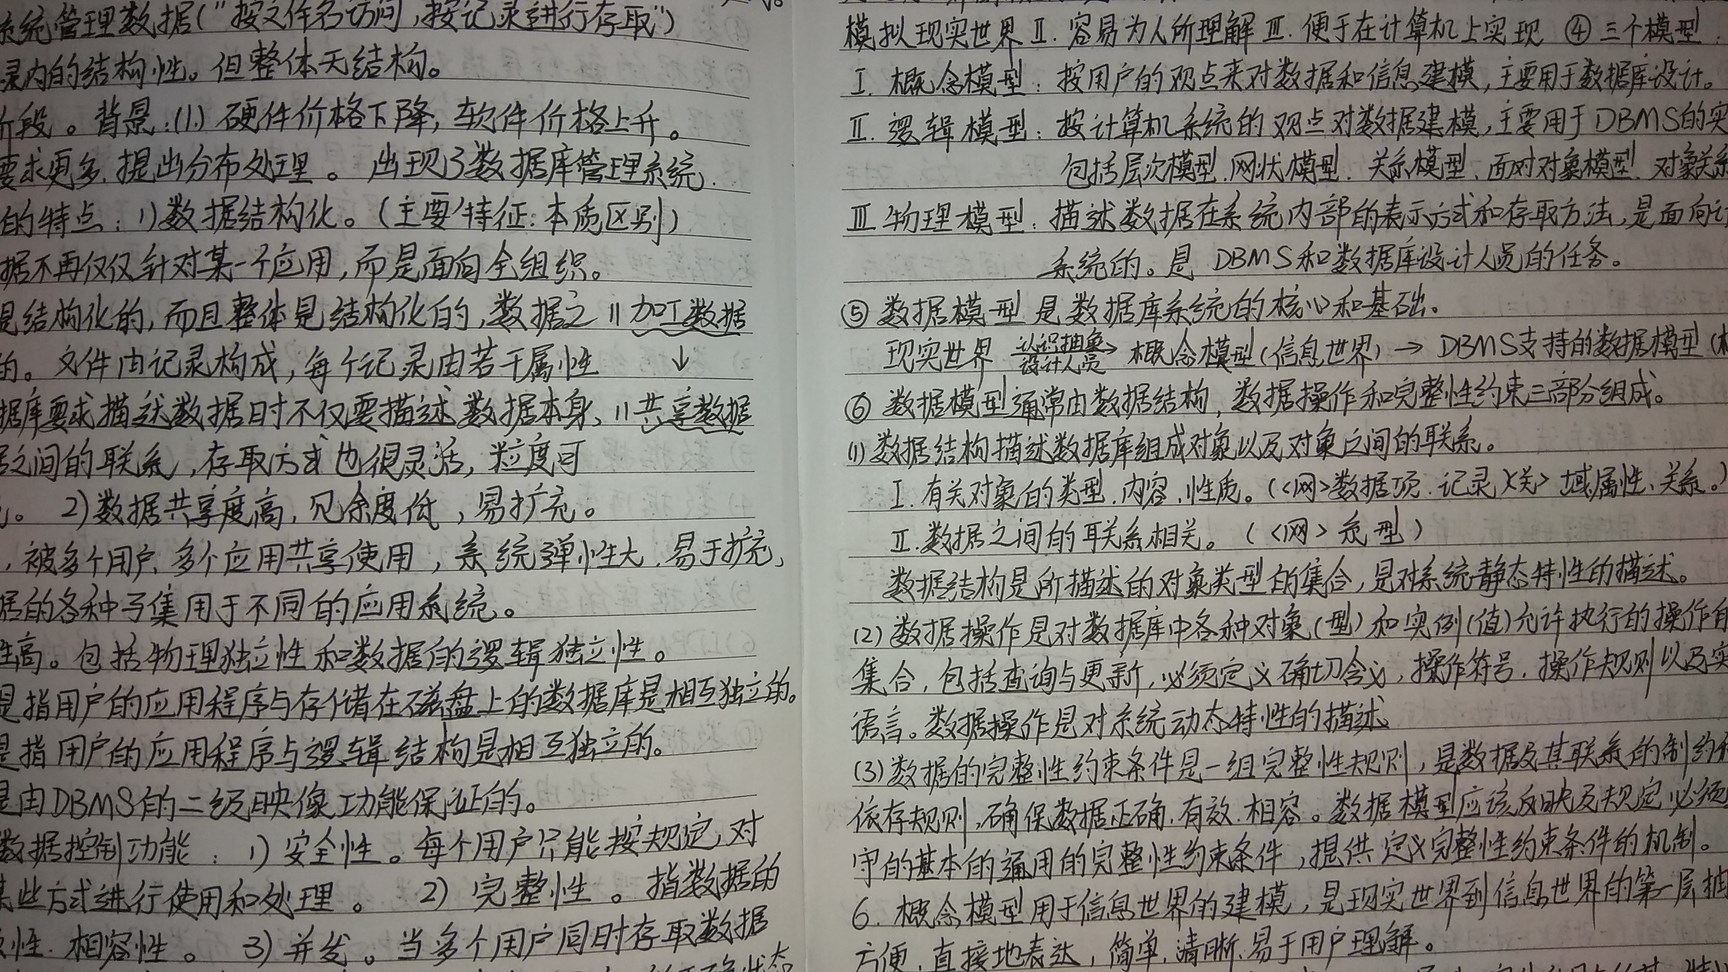 系统管理数据("按文件名访问,按记录进行存取")
录内的结构性。但整体无结构。
阶段。背景:(1.)硬件价格下降,软件价格上升。
要求更多,提出分布处理。出现了数据库管理系统.
的特点:1)数据结构化。(主要特征:本质区别)
据不再仅仅针对某一个应用,而是面向全组织。
是结构化的,而且整体是结构化的,数据之 11 加工数据
的。文件由记录构成,每个记录由若干属性 ↓
据库要求描述数据时不仅要描述数据本身、11 共享数据
之间的联系,存取方式也很灵活,粒度可
。2)数据共享度高,冗余度低,易扩充。
,被多个用户、多个应用共享使用,系统弹性大.易于扩充,
据的各种子集用于不同的应用系统。
性高。包括物理独立性和数据的逻辑独立性。
是指用户的应用程序与存储在磁盘上的数据库是相互独立的。
是指用户的应用程序与逻辑结构是相互独立的。
是由DBMS的二级映像功能保证的。
数据控制功能:1)安全性。每个用户只能按规定,对
某些方式进行使用和处理。2)完整性。指数据的
性.相容性。3)并发。当多个用户同时存取数据
模拟现实世界Ⅱ.容易为人所理解Ⅲ.便于在计算机上实现 ④三个模型:
Ⅰ.概念模型:按用户的观点来对数据和信息建模,主要用于数据库设计。
Ⅱ.逻辑模型:按计算机系统的观点对数据建模,主要用于DBMS的实
包括层次模型.网状模型.关系模型.面对对象模型.对象关系
Ⅲ物理模型:描述数据在系统内部的表示方式和存取方法,是面向计
系统的。是DBMS和数据库设计人员的任务。
⑤数据模型是数据库系统的核心和基础。
现实世界 认识抽象 设计人员 概念模型(信息世界)→DBMS支持的数据模型(
⑥数据模型通常由数据结构,数据操作和完整性约束三部分组成。
(1)数据结构描述数据库组成对象以及对象之间的联系。
Ⅰ.有关对象的类型.内容.性质。(<网>数据项.记录)<关>域,属性、关系。)
Ⅱ.数据之间的联系相关。(<网>系型)
数据结构是所描述的对象类型的集合,是对系统静态特性的描述。
(2)数据操作是对数据库中各种对象(型)和实例(值)允许执行的操作的
集合,包括查询与更新,必须定义确切含义,操作符号.操作规则以及实
语言。数据操作是对系统动态特性的描述.
(3)数据的完整性约束条件是一组完整性规则,是数据及其联系的制约和
依存规则,确保数据正确.有效.相容。数据模型应该反映及规定必须
守的基本的通用的完整性约束条件,提供定义完整性约束条件的机制。
6.概念模型用于信息世界的建模,是现实世界到信息世界的第一层抽
方便,直接地表达,简单.清晰.易于用户理解。